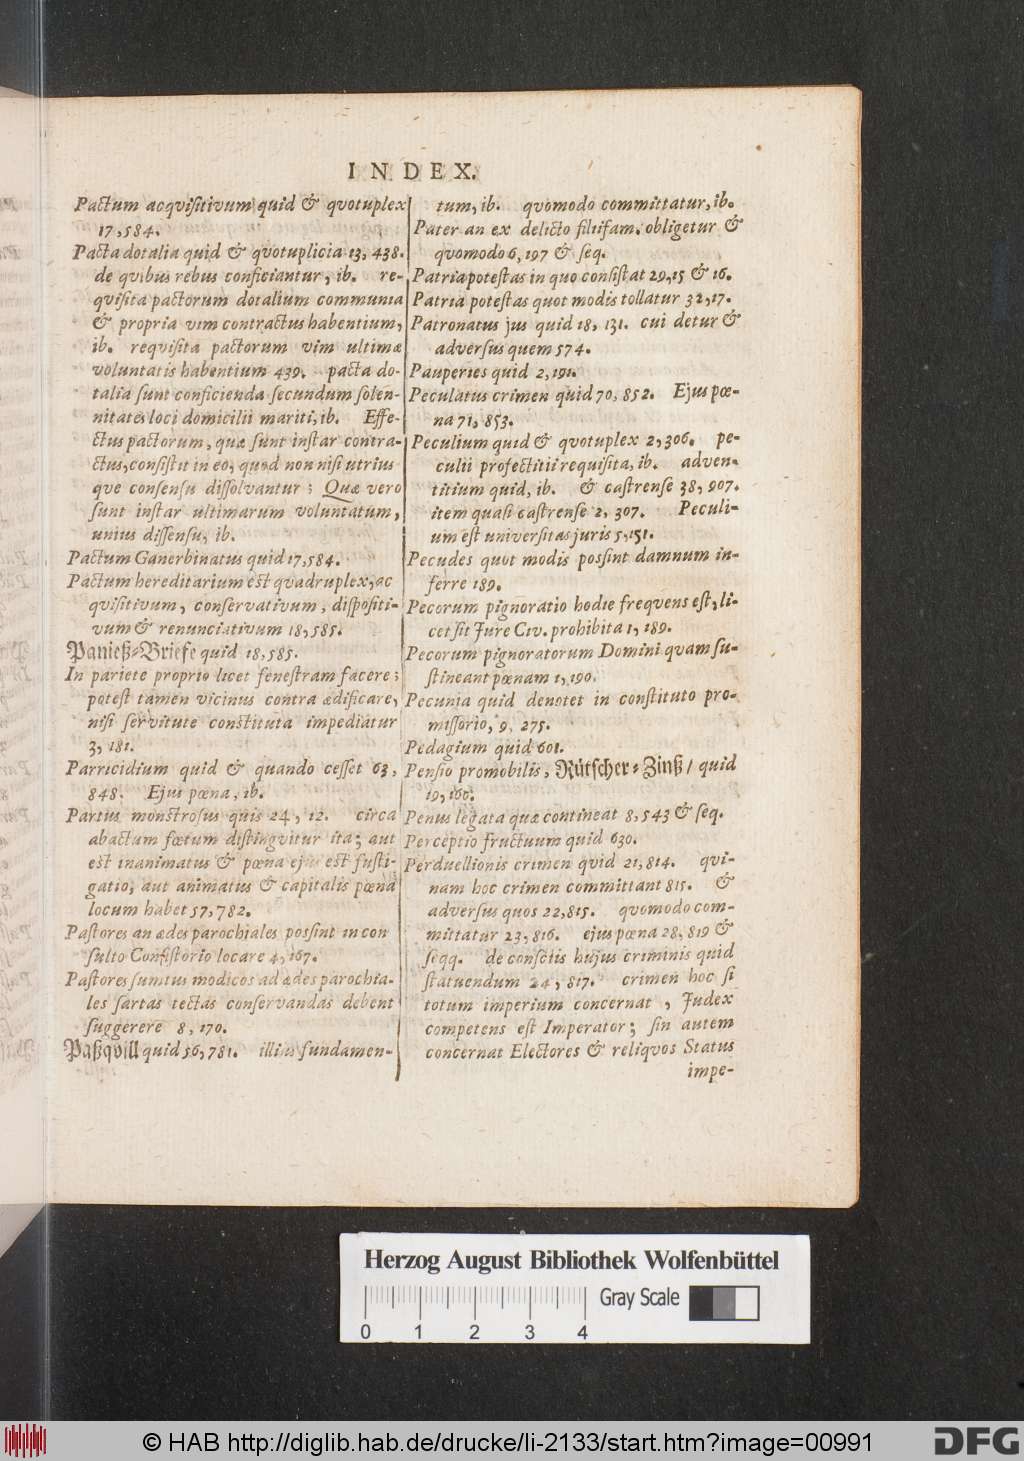 INDEX.
Pactum acqvisitivum quid & qvotuplex
17, 584.
Pacta dotalia quid & qvotuplicia 13, 438.
de qvibus rebus conficiantur, ib. re-
qvisita pactorum dotalium communia
& propria vim contractus habentium,
ib. requisita pactorum vim ultimæ
voluntatis habentium 439. pacta do-
talia sunt conficienda secundum solen-
nitates loci domicilii mariti, ib. Effe-
ctus pactorum, quæ sunt instar contra-
ctus, consistit in eo, quod non nisi utrius
que consensu dissolvantur; Quæ vero
sunt instar ultimarum voluntatum,
unius dissensu, ib.
Pactum Ganerbinatus quid 17, 584.
Pactum hereditarium est quadruplex, ac
qvisitivum, conservativum, dispositi-
vum & renunciativum 18, 585.
Panieß-Briefe quid 18, 585.
In pariete proprio licet fenestram facere;
potest tamen vicinus contra ædificare,
nisi servitute constituta impediatur
3, 181.
Parricidium quid & quando cesset 63,
848. Ejus pœna, ib.
Partus monstrosus quis 24, 12. circa
abactum fœtum distingvitur ita; aut
est inanimatus & pœna ejus est fusti-
gatio, aut animatus & capitalis pœna
locum habet 57, 782.
Pastores an ædes parochiales possint incon
sulto Consistorio locare 4, 167.
Pastores sumtus modicos ad ædes parochia-
les sartas tectas conservandas debent
suggerere 8, 170.
Paßqvill quid 56, 781. illius fundamen-
tum, ib. qvomodo committatur, ib.
Pater an ex delicto filiifam. obligetur &
qvomodo 6, 197 & seq.
Patria potestas in quo consistat 29, 15 & 16.
Patria potestas quot modis tollatur 32, 17.
Patronatus jus quid 18, 131. cui detur &
adversus quem 574.
Pauperies quid 2, 191.
Peculatus crimen quid 70, 852. Ejus pœ-
na 71, 853.
Peculium quid & qvotuplex 2, 306. pe-
culii profectitii requisita, ib. adven-
titium quid, ib. & castrense 38, 907.
item quasi castrense 2, 307. Peculi-
um est universitas juris 5, 151.
Pecudes quot modis possint damnum in-
ferre 189.
Pecorum pignoratio hodie freqvens est, li-
cet sit Jure Civ. prohibita 1, 189.
Pecorum pignoratorum Domini qvam su-
stineant pœnam 1, 190.
Pecunia quid denotet in constituto pro-
missorio, 9, 275.
Pedagium quid 601.
Pensio promobilis, Rütscher-Zinß / quid
19, 160.
Penus legata quæ contineat 8, 543 & seq.
Perceptio fructuum quid 630.
Perduellionis crimen qvid 21, 814. qvi-
nam hoc crimen committant 815. &
adversus quos 22, 815. qvomodo com-
mittatur 23, 816. ejus pœna 28, 819 &
seqq. de consciis hujus criminis quid
statuendum 24, 817. crimen hoc si
totum imperium concernat, Judex
competens est Imperator; sin autem
concernat Electores & reliqvos Status
impe-
Herzog August Bibliothek Wolfenbüttel
Gray Scale
0 1 2 3 4
© HAB http://diglib.hab.de/drucke/li-2133/start.htm?image=00991
DFG